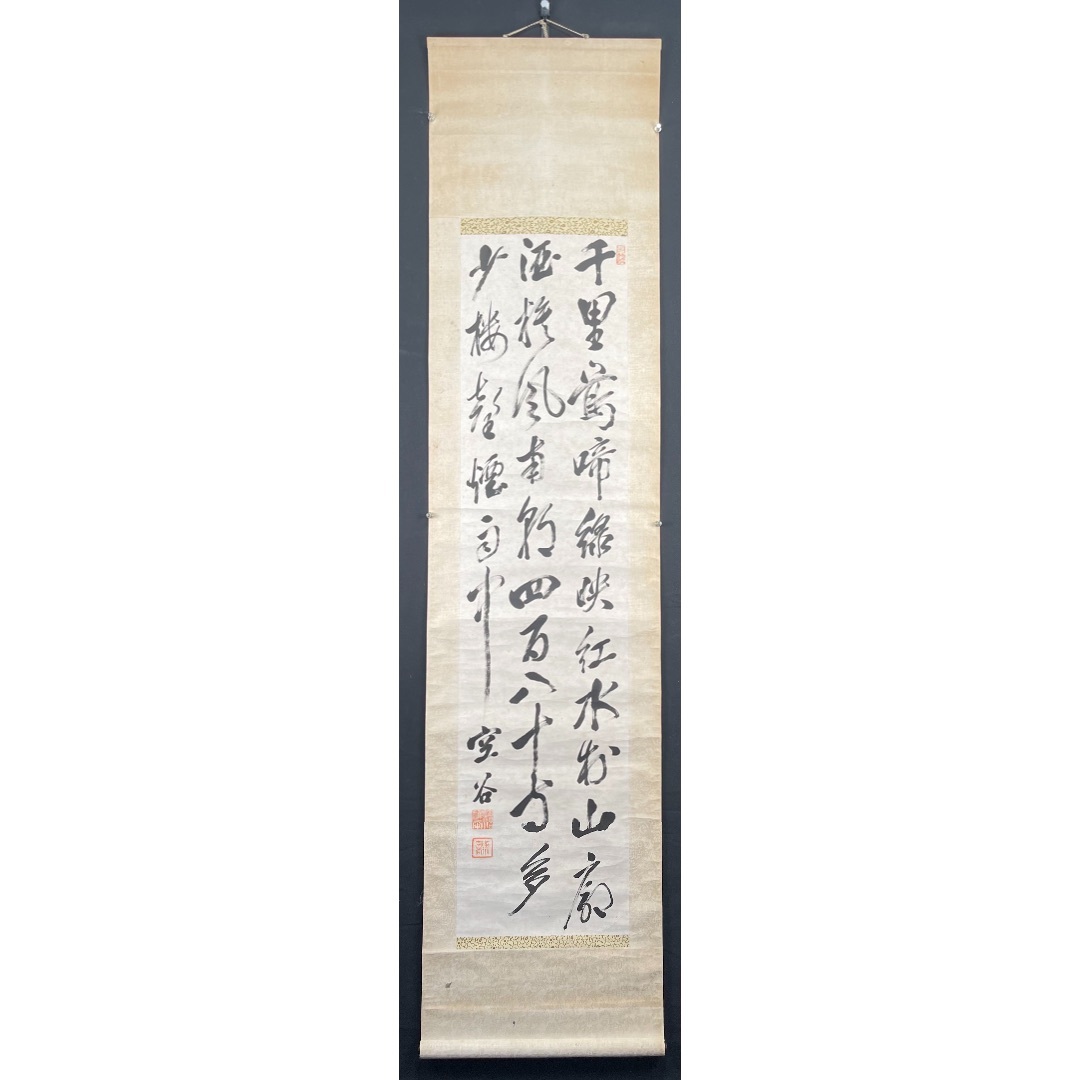 千里鶯啼緑映紅水村山郭
酒旗風南朝四百八十寺多
少楼臺煙雨中
空谷